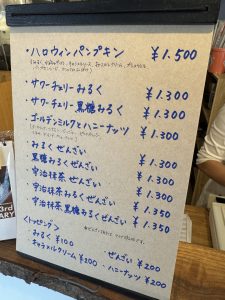 ・ハロウィンパンプキン ¥1.500
・サワーチェリーみるく ¥1.300
・サワーチェリー黒糖みるく ¥1.300
・ゴールデンミルクとハニーナッツ ¥1.300
・みるくぜんざい ¥1.300
・黒糖みるくぜんざい ¥1.300
・宇治抹茶ぜんざい ¥1.300
・宇治抹茶みるくぜんざい ¥1.350
・宇治抹茶黒糖みるくぜんざい ¥1.350
<トッピング>
・みるく ¥100 ぜんざい ¥200
・キャラメルクリーム ¥200 ・ハニーナッツ ¥200
3rd
ARY